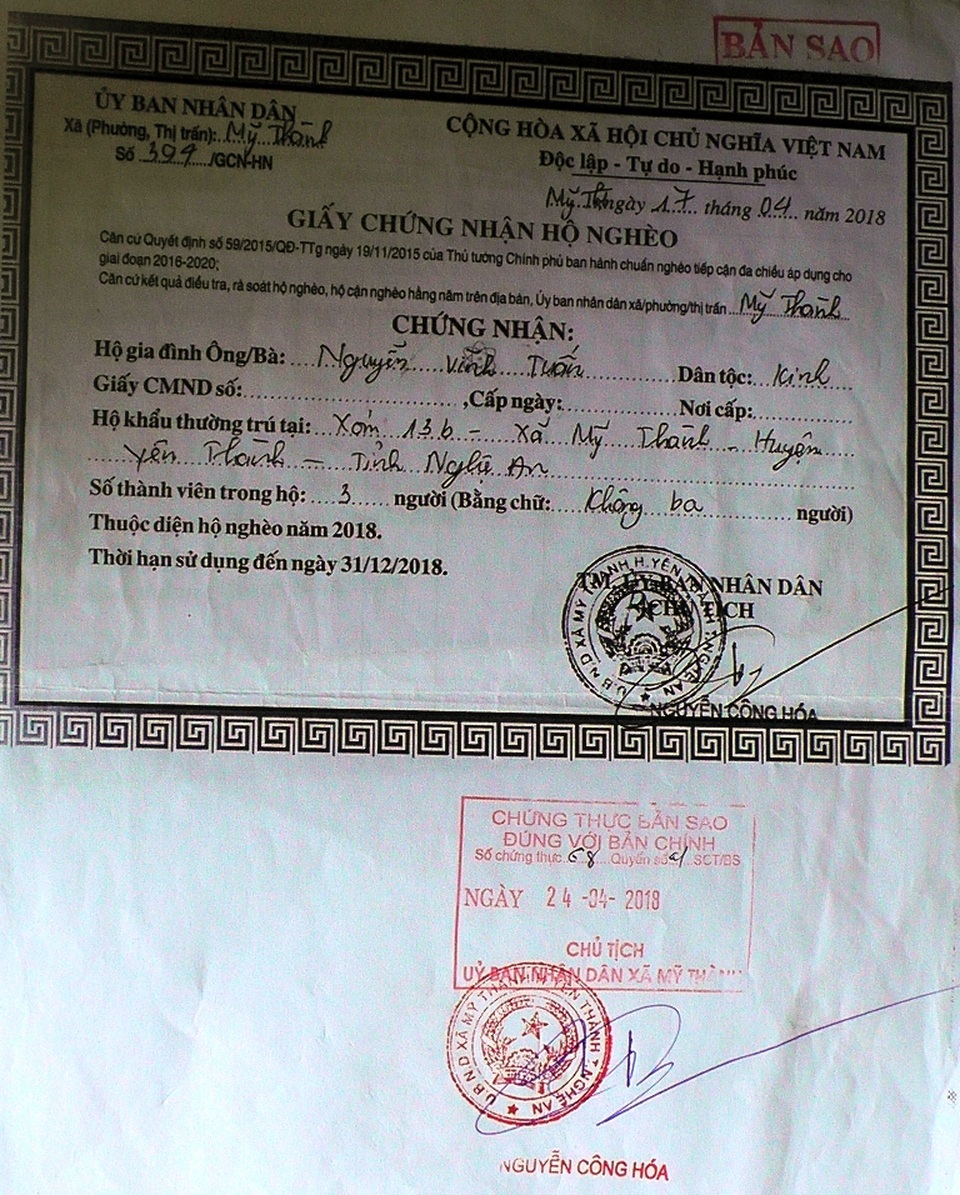 BẢN SAO
ỦY BAN NHÂN DÂN
Xã (Phường, Thị trấn): Mỹ Thành
Số 397 /GCN-HN
CỘNG HÒA XÃ HỘI CHỦ NGHĨA VIỆT NAM
Độc lập - Tự do - Hạnh phúc
Mỹ Th ngày 17 tháng 04 năm 2018
GIẤY CHỨNG NHẬN HỘ NGHÈO
Căn cứ Quyết định số 59/2015/QĐ-TTg ngày 19/11/2015 của Thủ tướng Chính phủ ban hành chuẩn nghèo tiếp cận đa chiều áp dụng cho
giai đoạn 2016-2020;
Căn cứ kết quả điều tra, rà soát hộ nghèo, hộ cận nghèo hằng năm trên địa bàn, Ủy ban nhân dân xã/phường/thị trấn Mỹ Thành
CHỨNG NHẬN:
Hộ gia đình Ông/Bà: Nguyễn Vĩnh Tuấn Dân tộc: Kinh
Giấy CMND số: , Cấp ngày: Nơi cấp:
Hộ khẩu thường trú tại: Xóm 13b - Xã Mỹ Thành - Huyện
Yên Thành - Tỉnh Nghệ An
Số thành viên trong hộ: 3 người (Bằng chữ: Không ba người)
Thuộc diện hộ nghèo năm 2018.
Thời hạn sử dụng đến ngày 31/12/2018.
TM. ỦY BAN NHÂN DÂN
CHỦ TỊCH
U.B.N.D XÃ MỸ THÀNH H.YÊN THÀNH T.NGHỆ AN
NGUYỄN CÔNG HÓA
CHỨNG THỰC BẢN SAO
ĐÚNG VỚI BẢN CHÍNH
Số chứng thực 68 Quyển số 01 SCT/BS
NGÀY 24 -04- 2018
CHỦ TỊCH
UỶ BAN NHÂN DÂN XÃ MỸ THÀNH
U.B.N.D XÃ MỸ THÀNH H.YÊN THÀNH T.NGHỆ AN
NGUYỄN CÔNG HÓA